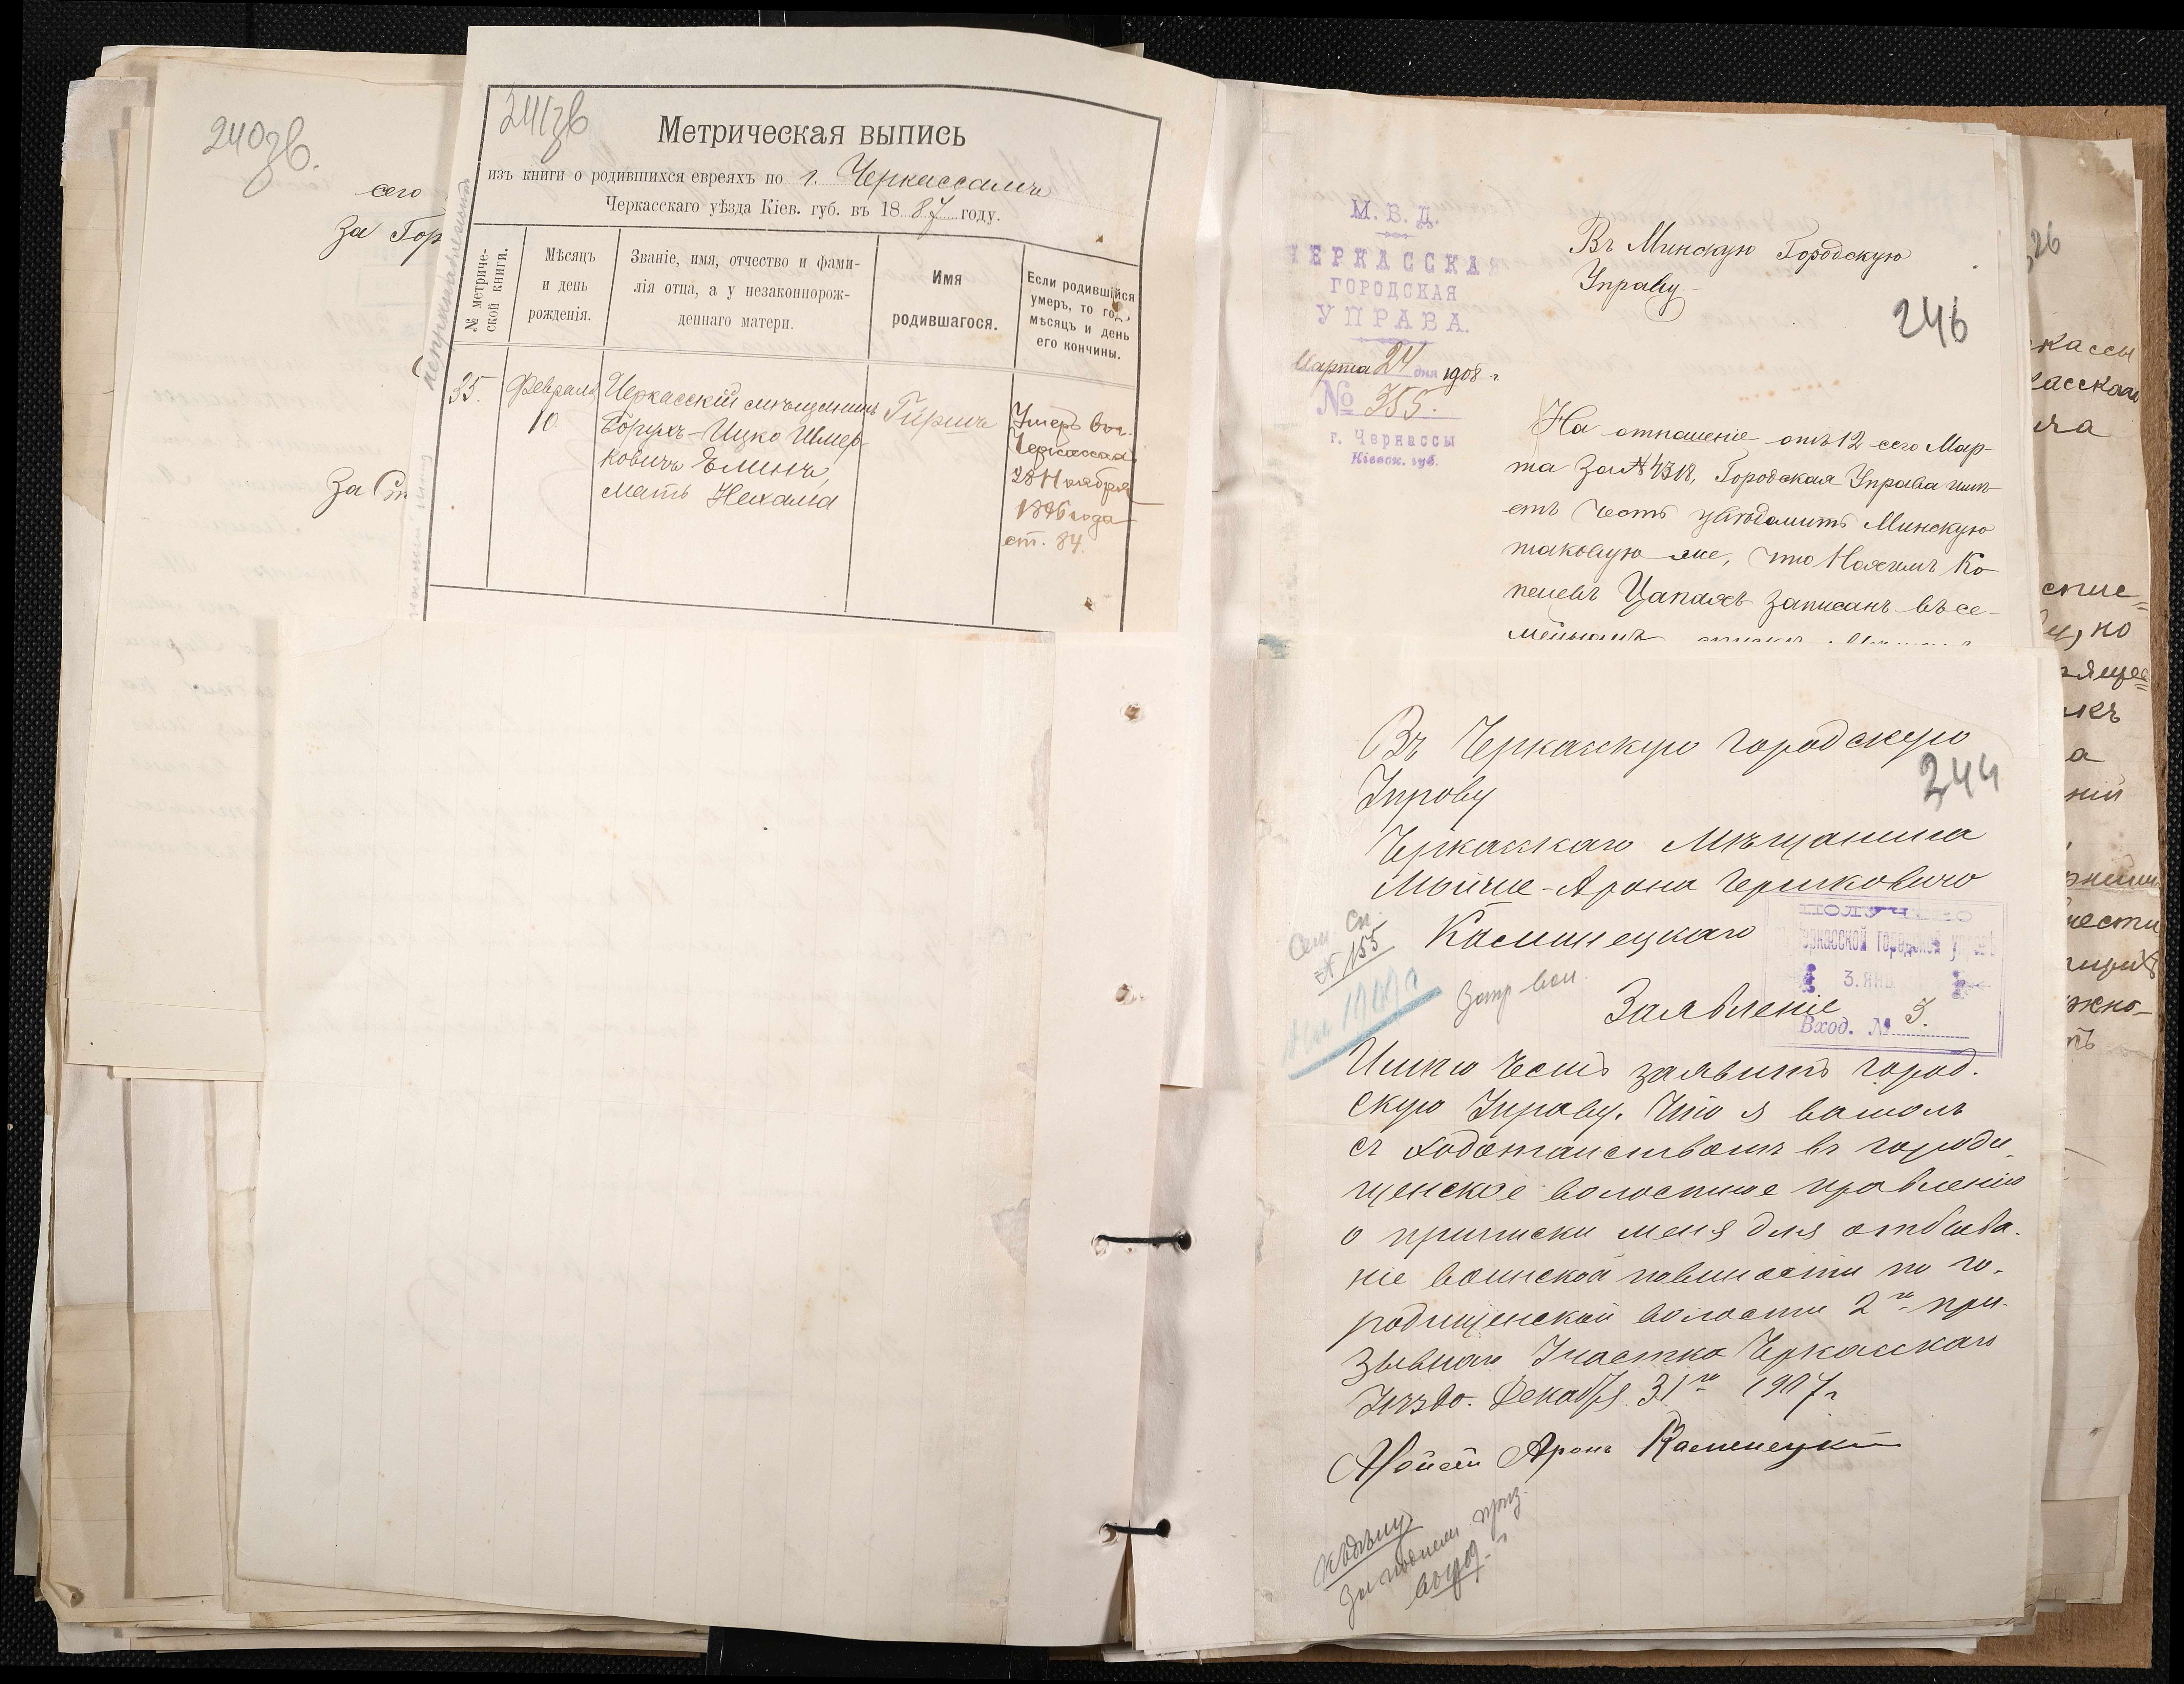 240зв.
сего
За Гор
За Сп
241зв
Метрическая выпись
изъ книги о родившихся евреяхъ по г. Черкассамъ
Черкасскаго уѣзда Кіев. губ. въ 1887 году.
№ метриче-
ской книги.
Мѣсяцъ
и день
рожденія.
Званіе, имя, отчество и фами-
лія отца, а у незаконнорож-
деннаго матери.
Имя
родившагося.
Если родившійся
умеръ, то год,
мѣсяцъ и день
его кончины.
35.
Февраля
10
Черкасскій мѣщанинъ
Борухъ-Ицко Шмер-
ковичъ Элинъ,
мать Нехама
Гиршъ
Умеръ въ г.
Черкассах
28 Ноября
1896 года
ст. 84.
М. В. Д.
ЧЕРКАССКАЯ
ГОРОДСКАЯ
УПРАВА.
Марта 24 дня 1908 г.
№ 355.
г. Черкассы
Кіевск. губ.
Въ Минскую Городскую
Управу
246
На отношеніе отъ 12 сего Мар-
та за № 4318, Городская Управа имѣ-
етъ честь увѣдомить Минскую
таковую же, что Ко-
пелевъ Цапахъ записанъ въ се-
мейномъ
Въ Черкасскую городскую
244
Управу
Черкасскаго Мѣщанина
Мойше-Арона Гершковича
Каминецкаго
Сем Сп.
№ 155
ПОЛУЧЕНО
Черкасской городской управ
3. ЯНВ.
Вход. № 3.
Заявленіе
Имѣю честь заявить город.
скую Управу. Что я вошолъ
съ ходотайствомъ въ городи-
щенское волостное правленію
о приписки меня для отбыва.
ніе воинской повиности по го-
родищенской волости 2го при-
зывнаго Участка Черкасскаго
Уѣзда. Декабря 31го 1907 г.
Мойсей Аронъ Каменецкій
326
кассы
касскаго
спис=
ко
ній
ности